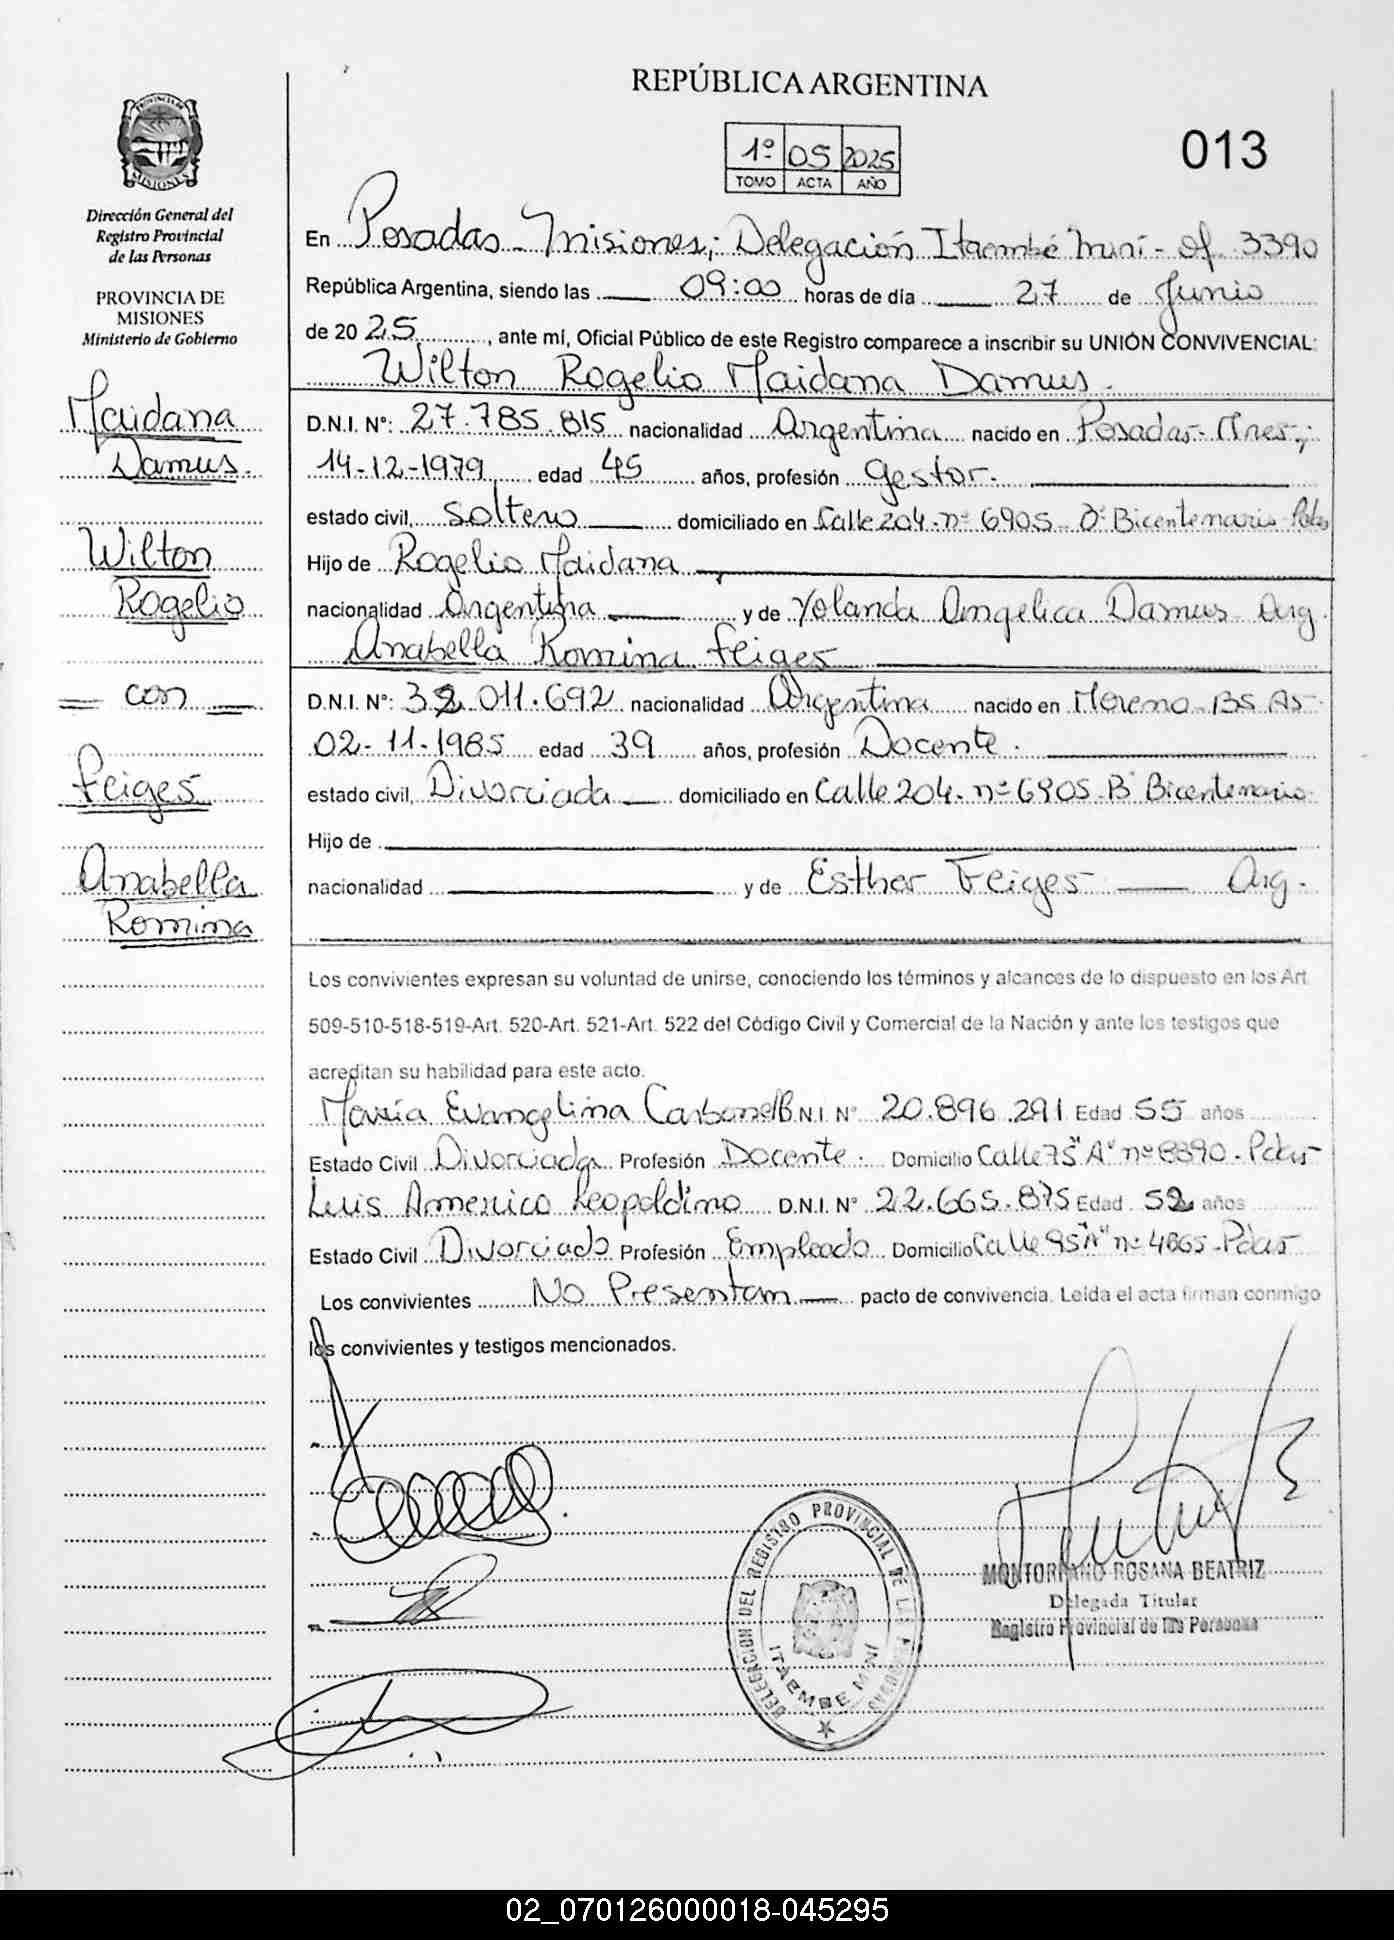 REPÚBLICA ARGENTINA
1º 05 2025
TOMO ACTA AÑO
013
PROVINCIA DE
MISIONES
Dirección General del
Registro Provincial
de las Personas
PROVINCIA DE
MISIONES
Ministerio de Gobierno
Maidana
Damus.
Wilton
Rogelio
= con =
Feiges
Anabella
Romina
En Posadas - Misiones; Delegación Itaembé Miní - Of. 3390
República Argentina, siendo las 09:00 horas de día 27 de Junio
de 20 25, ante mí, Oficial Público de este Registro comparece a inscribir su UNIÓN CONVIVENCIAL:
Wilton Rogelio Maidana Damus.
D.N.I. Nº: 27.785.815 nacionalidad Argentina nacido en Posadas - Mnes;
14-12-1979 edad 45 años, profesión Gestor.
estado civil, Soltero domiciliado en Calle 204 - nº 6905 Bº Bicentenario Pdas
Hijo de Rogelio Maidana
nacionalidad Argentina y de Yolanda Angelica Damus Arg.
Anabella Romina Feiges
D.N.I. Nº: 32.011.692 nacionalidad Argentina nacido en Moreno - BS AS
02-11-1985 edad 39 años, profesión Docente.
estado civil, Divorciada domiciliado en Calle 204 - nº 6905 - Bº Bicentenario
Hijo de
nacionalidad y de Esther Feiges Arg.
Los convivientes expresan su voluntad de unirse, conociendo los términos y alcances de lo dispuesto en los Art.
509-510-518-519-Art. 520-Art. 521-Art. 522 del Código Civil y Comercial de la Nación y ante los testigos que
acreditan su habilidad para este acto.
María Evangelina Carbonell D.N.I. Nº 20.896.291 Edad 55 años
Estado Civil Divorciada Profesión Docente. Domicilio Calle 75 "A" nº 8890 - Pdas
Luis Americo Leopoldino D.N.I. Nº 22.665.875 Edad 52 años
Estado Civil Divorciado Profesión Empleado Domicilio Calle 95 "A" nº 4865 - Pdas
Los convivientes No Presentan pacto de convivencia. Leída el acta firman conmigo
los convivientes y testigos mencionados.
DELEGACION DEL REGISTRO PROVINCIAL DE LAS PERSONAS
ITAEMBE MINI
MONTORFANO ROSANA BEATRIZ
Delegada Titular
Registro Provincial de las Personas
02_070126000018-045295